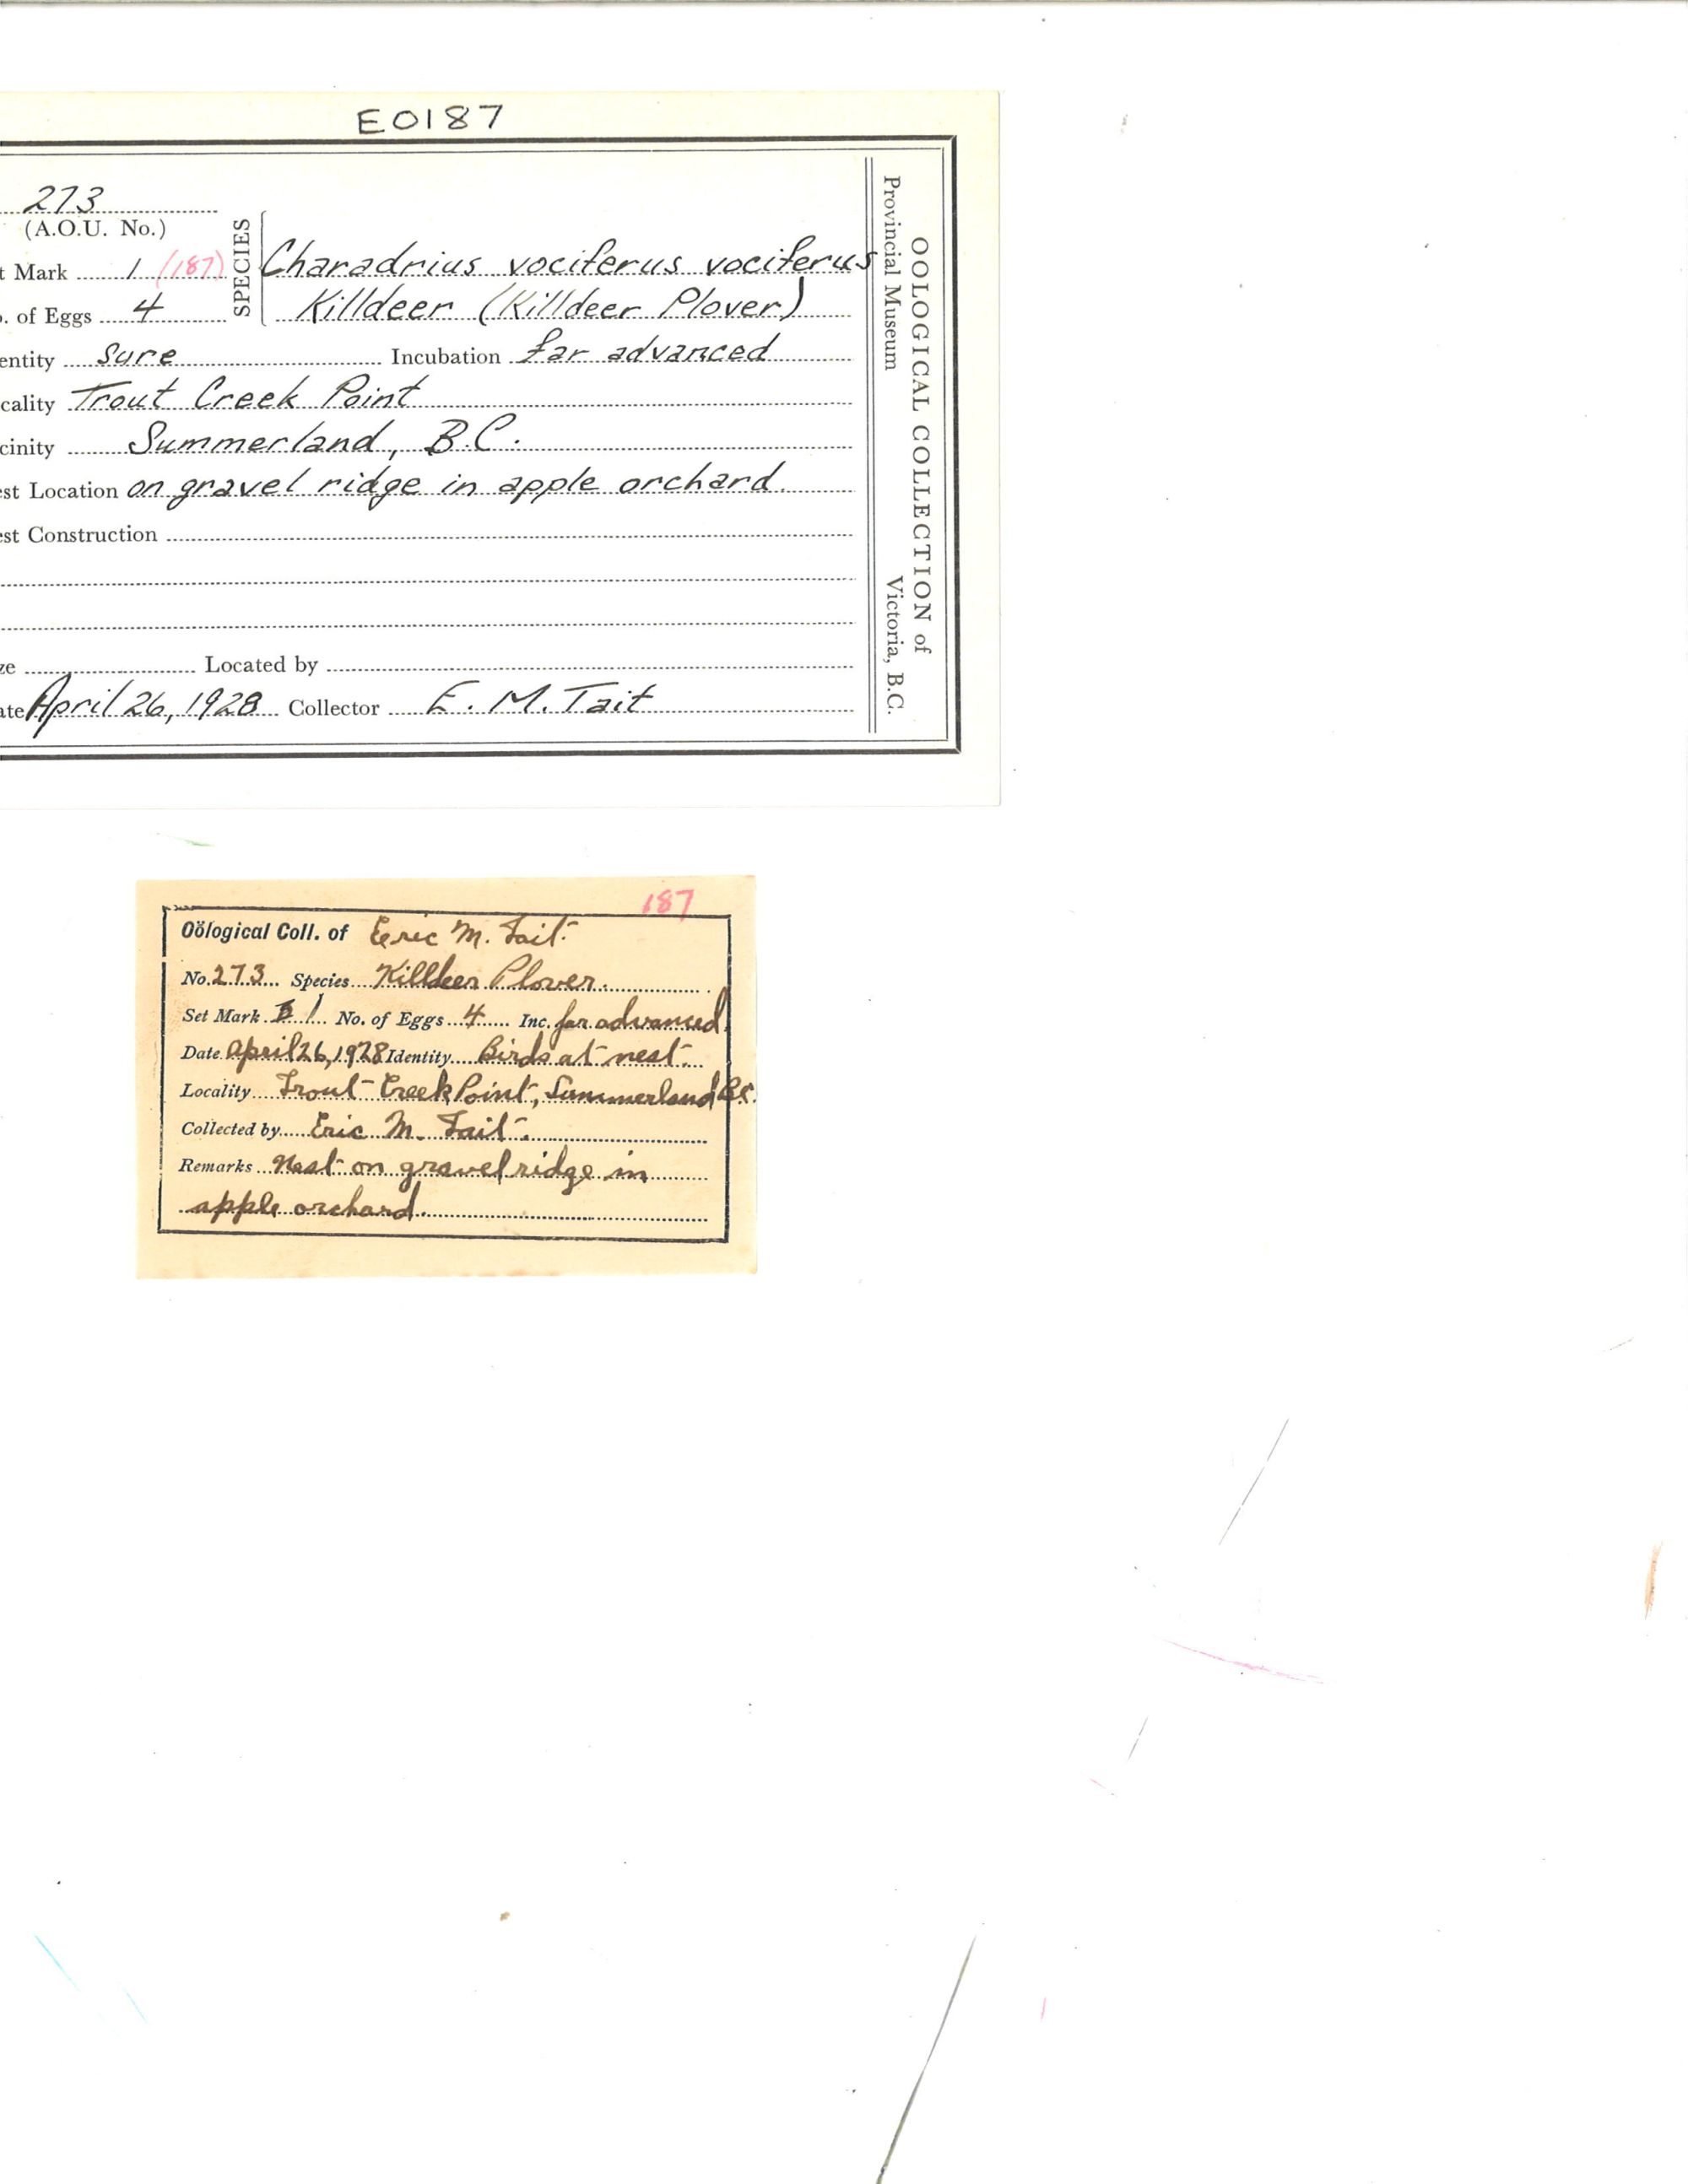 E0187
273
(A.O.U. No.)
t Mark 1 (187)
o. of Eggs 4
SPECIES
Charadrius vociferus vociferus
Killdeer (Killdeer Plover)
entity sure Incubation far advanced
cality Trout Creek Point
cinity Summerland, B.C.
est Location on gravel ridge in apple orchard.
est Construction
ze Located by
ate April 26, 1928 Collector E. M. Tait
OOLOGICAL COLLECTION of
Provincial Museum Victoria, B.C.
187
Oölogical Coll. of Eric M. Tait.
No. 273 Species Killdeer Plover.
Set Mark 1 No. of Eggs 4 Inc. far advanced.
Date April 26, 1928 Identity Birds at nest.
Locality Trout Creek Point, Summerland B.C.
Collected by Eric M. Tait.
Remarks Nest on gravel ridge in
apple orchard.